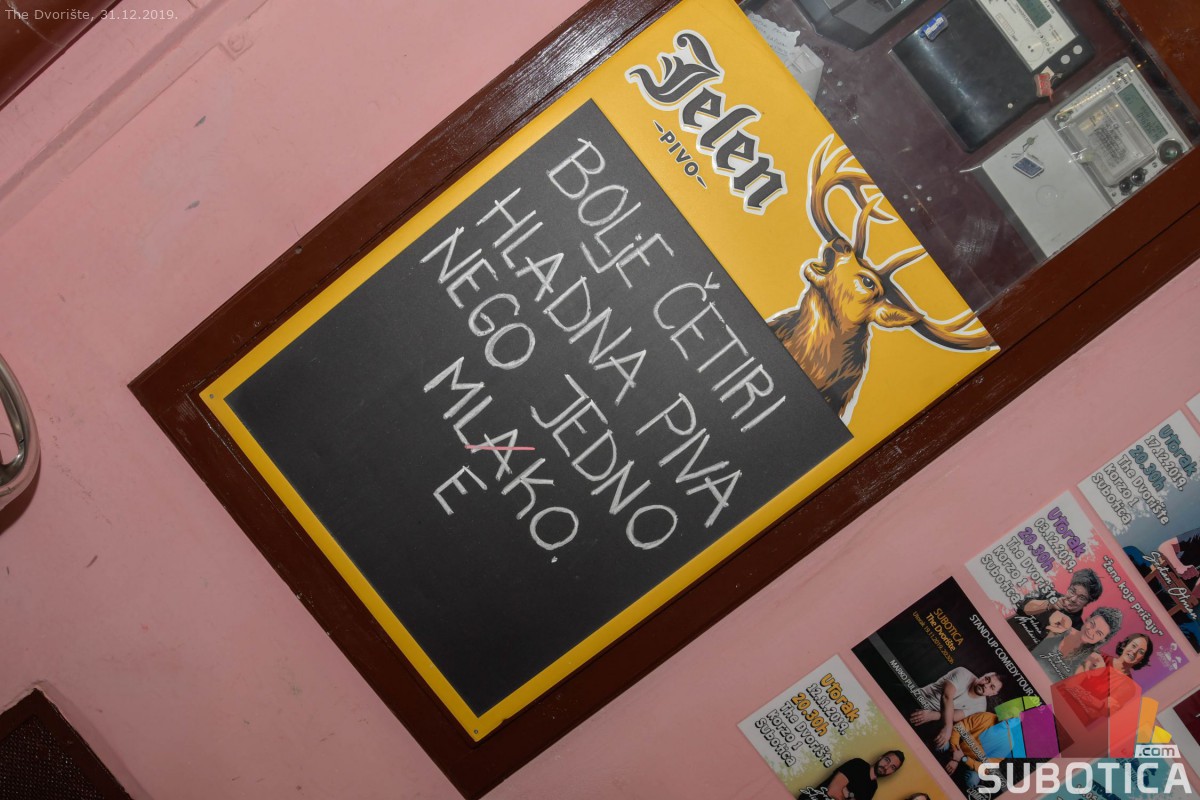 The Dvorište, 31.12.2019.
Jelen
-PIVO-
BOLJE ČETIRI
HLADNA PIVA
NEGO JEDNO
MLAKO.
E
Utorak
17.12.2019.
20.30h
The Dvorište
Korzo 1
Subotica
Utorak
03.12.2019.
20.30h
The Dvorište
Korzo 1
Subotica
"Žene koje pričaju"
STAND-UP COMEDY TOUR
SUBOTICA
The Dvorište
Utorak
12.11.2019.
20.30h
The Dvorište
Korzo 1
Subotica
.com
SUBOTICA